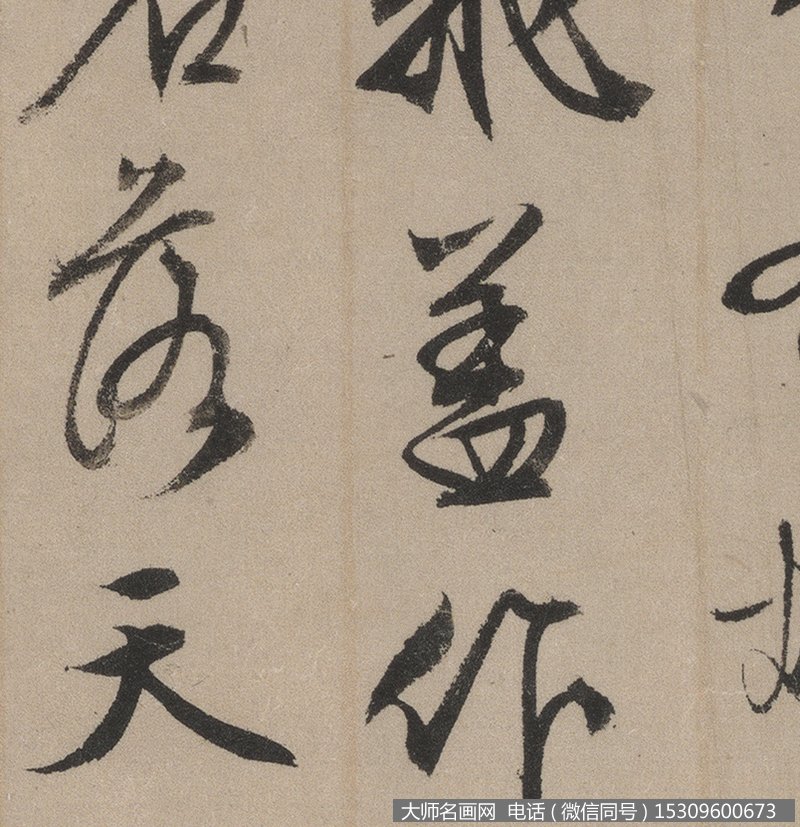 飛盖作
落天
大师名画网 电话（微信同号）15309600673